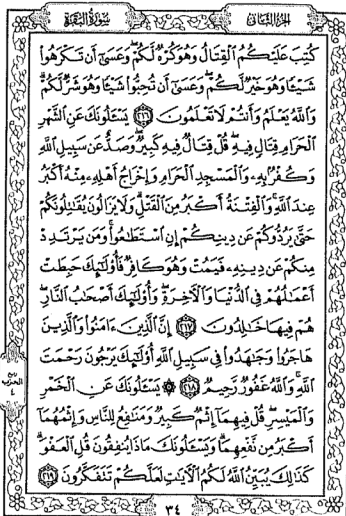 الجزء الثاني
سورة البقرة
كُتِبَ عَلَيْكُمُ الْقِتَالُ وَهُوَ كُرْهٌ لَّكُمْ وَعَسَىٰ أَن تَكْرَهُوا
شَيْئًا وَهُوَ خَيْرٌ لَّكُمْ وَعَسَىٰ أَن تُحِبُّوا شَيْئًا وَهُوَ شَرٌّ لَّكُمْ
وَاللَّهُ يَعْلَمُ وَأَنتُمْ لَا تَعْلَمُونَ ٢١٦ يَسْأَلُونَكَ عَنِ الشَّهْرِ
الْحَرَامِ قِتَالٍ فِيهِ قُلْ قِتَالٌ فِيهِ كَبِيرٌ وَصَدٌّ عَن سَبِيلِ اللَّهِ
وَكُفْرٌ بِهِ وَالْمَسْجِدِ الْحَرَامِ وَإِخْرَاجُ أَهْلِهِ مِنْهُ أَكْبَرُ
عِندَ اللَّهِ وَالْفِتْنَةُ أَكْبَرُ مِنَ الْقَتْلِ وَلَا يَزَالُونَ يُقَاتِلُونَكُمْ
حَتَّىٰ يَرُدُّوكُمْ عَن دِينِكُمْ إِنِ اسْتَطَاعُوا وَمَن يَرْتَدِدْ
مِنكُمْ عَن دِينِهِ فَيَمُتْ وَهُوَ كَافِرٌ فَأُولَٰئِكَ حَبِطَتْ
أَعْمَالُهُمْ فِي الدُّنْيَا وَالْآخِرَةِ وَأُولَٰئِكَ أَصْحَابُ النَّارِ
هُمْ فِيهَا خَالِدُونَ ٢١٧ إِنَّ الَّذِينَ آمَنُوا وَالَّذِينَ
هَاجَرُوا وَجَاهَدُوا فِي سَبِيلِ اللَّهِ أُولَٰئِكَ يَرْجُونَ رَحْمَتَ
اللَّهِ وَاللَّهُ غَفُورٌ رَّحِيمٌ ٢١٨ ۞ يَسْأَلُونَكَ عَنِ الْخَمْرِ
وَالْمَيْسِرِ قُلْ فِيهِمَا إِثْمٌ كَبِيرٌ وَمَنَافِعُ لِلنَّاسِ وَإِثْمُهُمَا
أَكْبَرُ مِن نَّفْعِهِمَا وَيَسْأَلُونَكَ مَاذَا يُنفِقُونَ قُلِ الْعَفْوَ
كَذَٰلِكَ يُبَيِّنُ اللَّهُ لَكُمُ الْآيَاتِ لَعَلَّكُمْ تَتَفَكَّرُونَ ٢١٩
ربع
الحزب
٤
٣٤